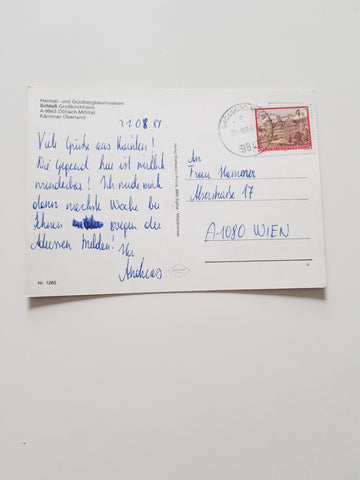 Heimat- und Goldbergbaumuseum
Schloß Großkirchheim
A-9843 Döllach-Mölltal
Kärntner Oberland
21.08.87
Viele Grüße aus Kärnten!
Die Gegend hier ist wirklich
wunderbar! Ich werde mich
dann nächste Woche bei
Ihnen wegen der
Adressen melden!
Ihr
Andreas
Nr. 1265
An
Frau
Alserstraße 17
A-1080 WIEN
4